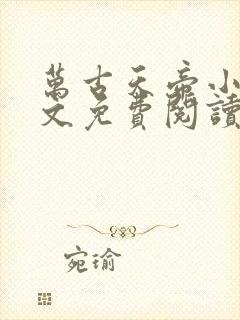 萬古天帝小
文免費閱讀
宛瑜